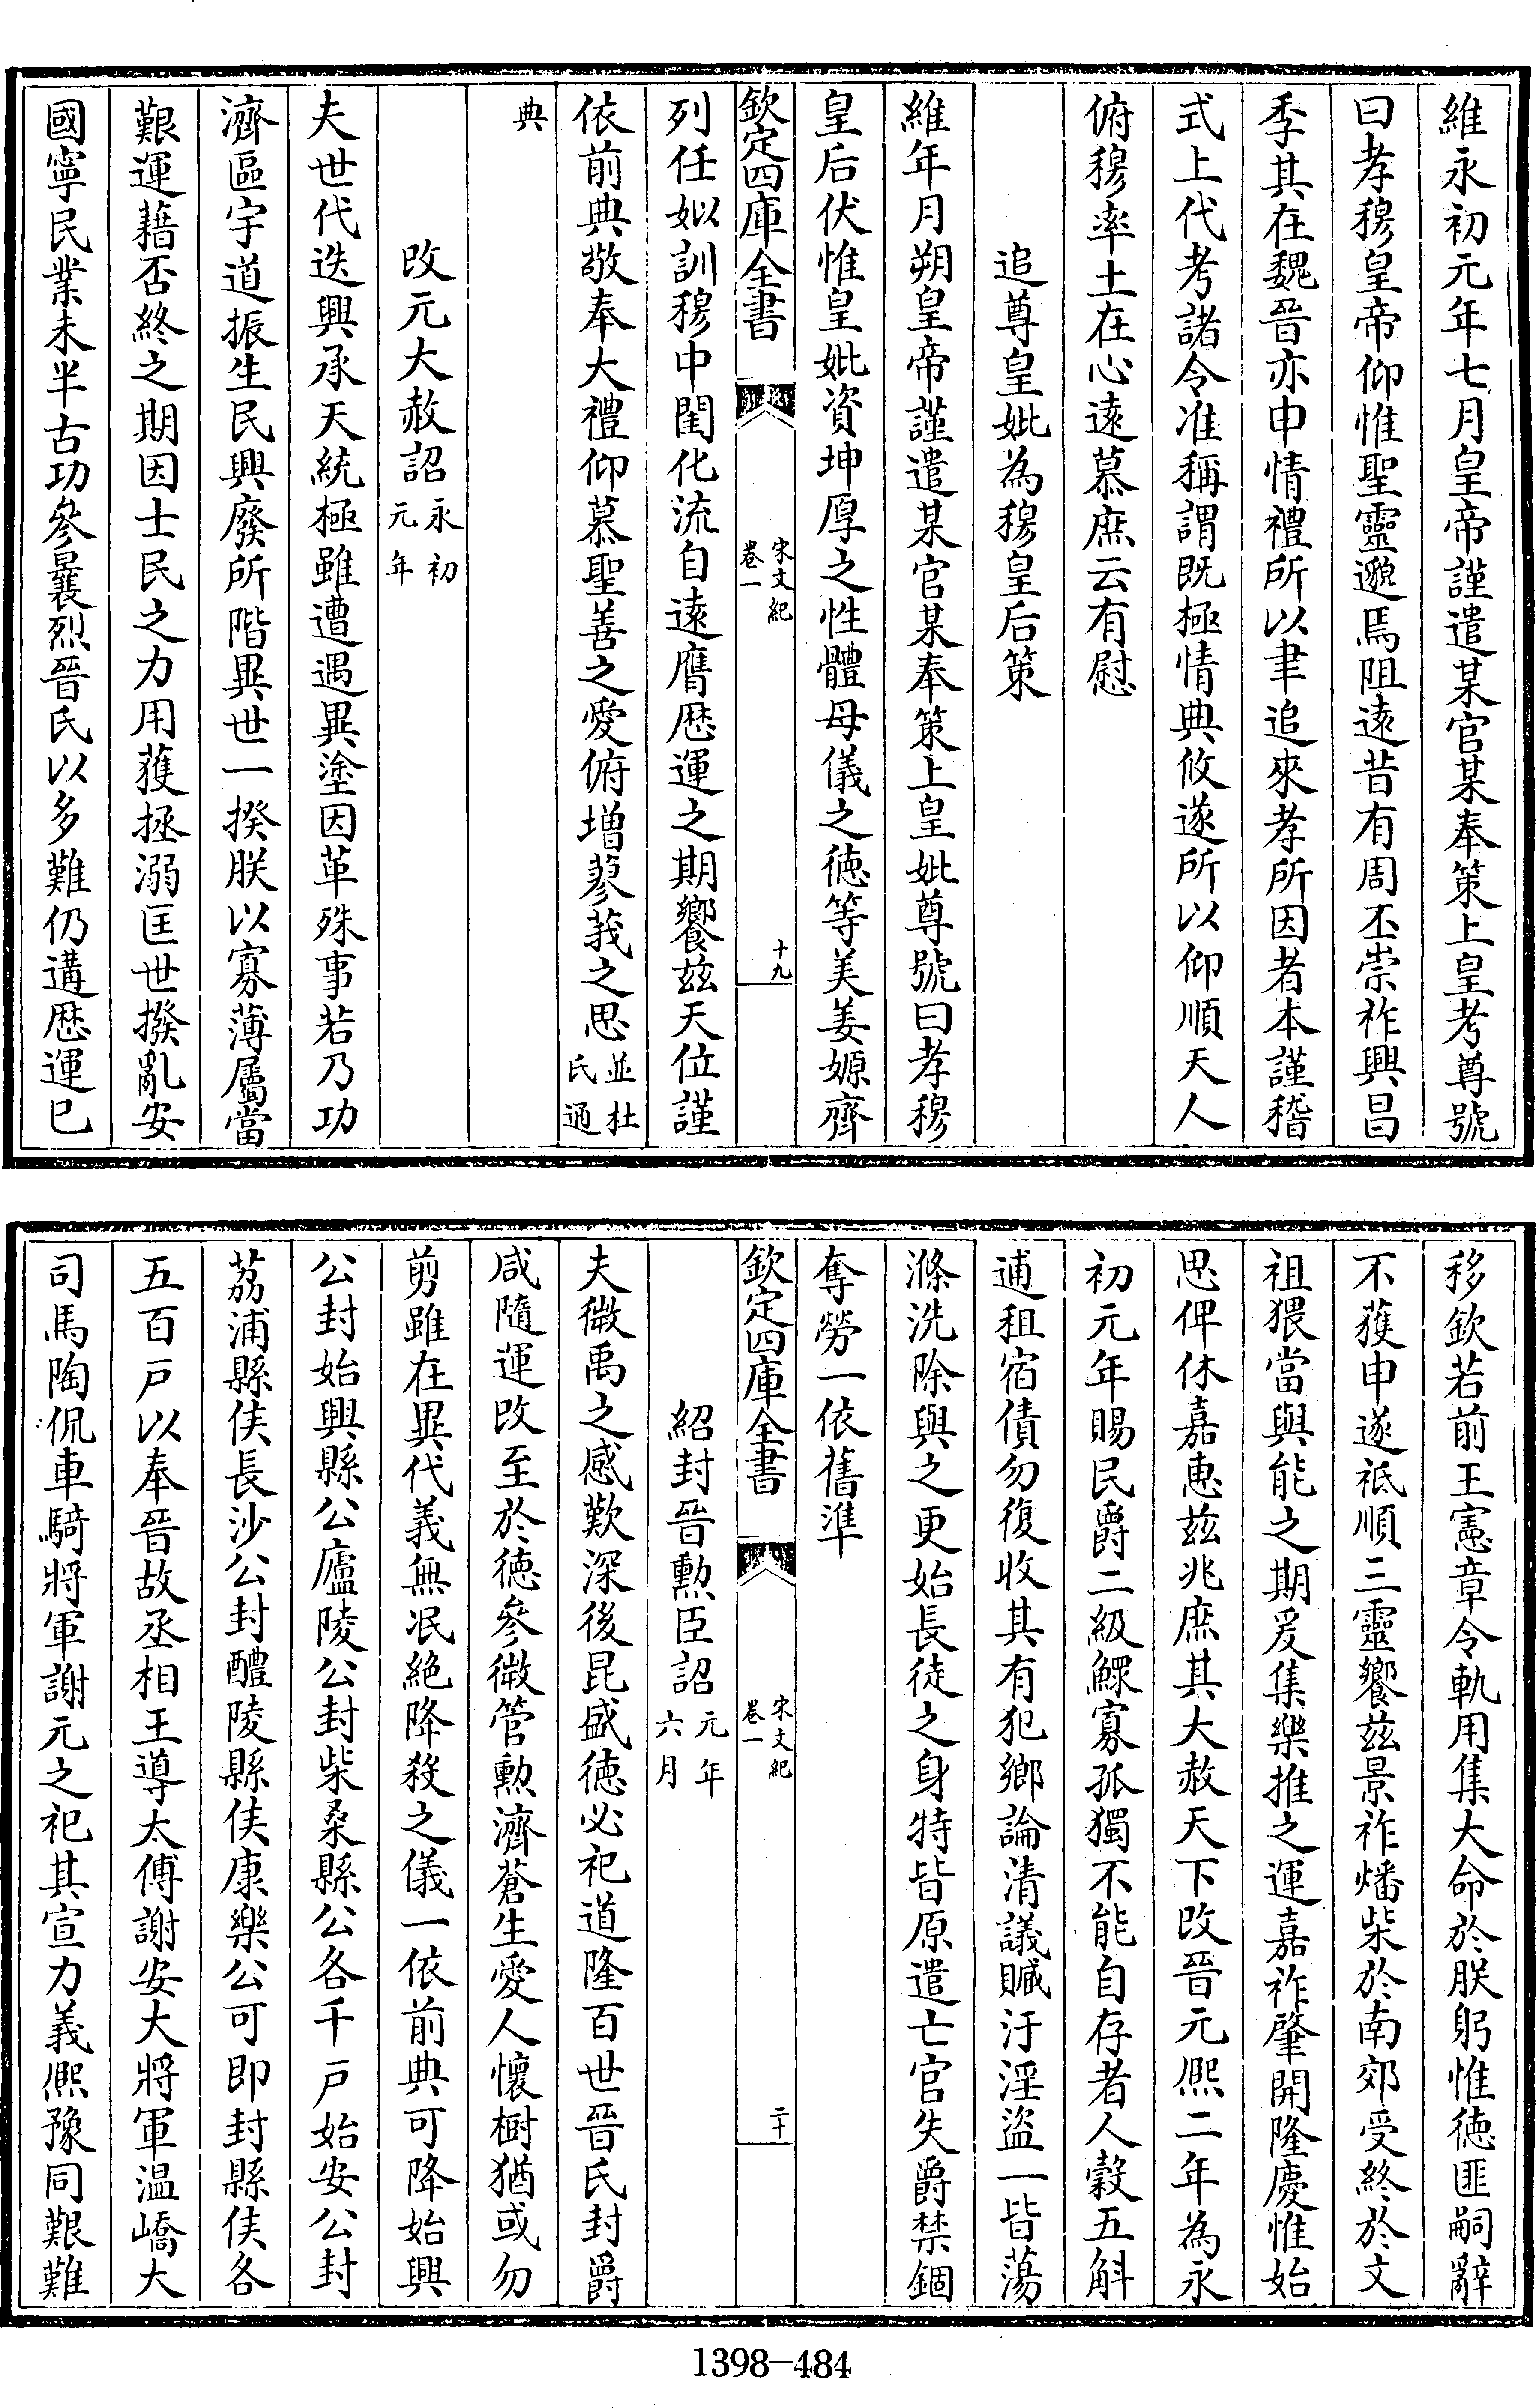 維永初元年七月皇帝謹遣某官某奉策上皇考尊號
曰孝穆皇帝仰惟聖靈邈焉阻遠昔有周丕崇祚興昌
季其在魏晉亦申情禮所以聿追來孝所因者本謹稽
式上代考諸令准稱謂既極情典攸遂所以仰順天人
俯穆率土在心遠慕庶云有慰
追尊皇妣為穆皇后策
維年月朔皇帝謹遣某官某奉策上皇妣尊號曰孝穆
皇后伏惟皇妣資坤厚之性體母儀之徳等美姜嫄齊
欽定四庫全書
宋文紀
卷一
十九
列任姒訓穆中閨化流自遠膺厯運之期饗兹天位謹
依前典敬奉大禮仰慕聖善之愛俯増蓼莪之思並杜氏通
典
改元大赦詔永初元年
夫世代迭興承天統極雖遭遇異塗因革殊事若乃功
濟區宇道振生民興廢所階異世一揆朕以寡薄屬當
艱運藉否終之期因士民之力用獲拯溺匡世撥亂安
國寧民業未半古功參曩烈晉氏以多難仍遘厯運已
移欽若前王憲章令軌用集大命於朕躬惟徳匪嗣辭
不獲申遂祗順三靈饗兹景祚燔柴於南郊受終於文
祖猥當與能之期爰集樂推之運嘉祚肇開隆慶惟始
思俾休嘉惠兹兆庶其大赦天下改晉元熙二年為永
初元年賜民爵二級鰥寡孤獨不能自存者人穀五斛
逋租宿債勿復收其有犯鄉論清議贓汙淫盜一皆蕩
滌洗除與之更始長徒之身特皆原遣亡官失爵禁錮
奪勞一依舊準
欽定四庫全書
宋文紀
卷一
二十
紹封晉勲臣詔元年六月
夫微禹之感歎深後昆盛徳必祀道隆百世晉氏封爵
咸隨運改至於徳參微管勲濟蒼生愛人懷樹猶或勿
剪雖在異代義無泯絶降殺之儀一依前典可降始興
公封始興縣公廬陵公封柴桑縣公各千戸始安公封
荔浦縣侯長沙公封醴陵縣侯康樂公可即封縣侯各
五百戸以奉晉故丞相王導太傅謝安大將軍温嶠大
司馬陶侃車騎將軍謝元之祀其宣力義熙豫同艱難
1398-484